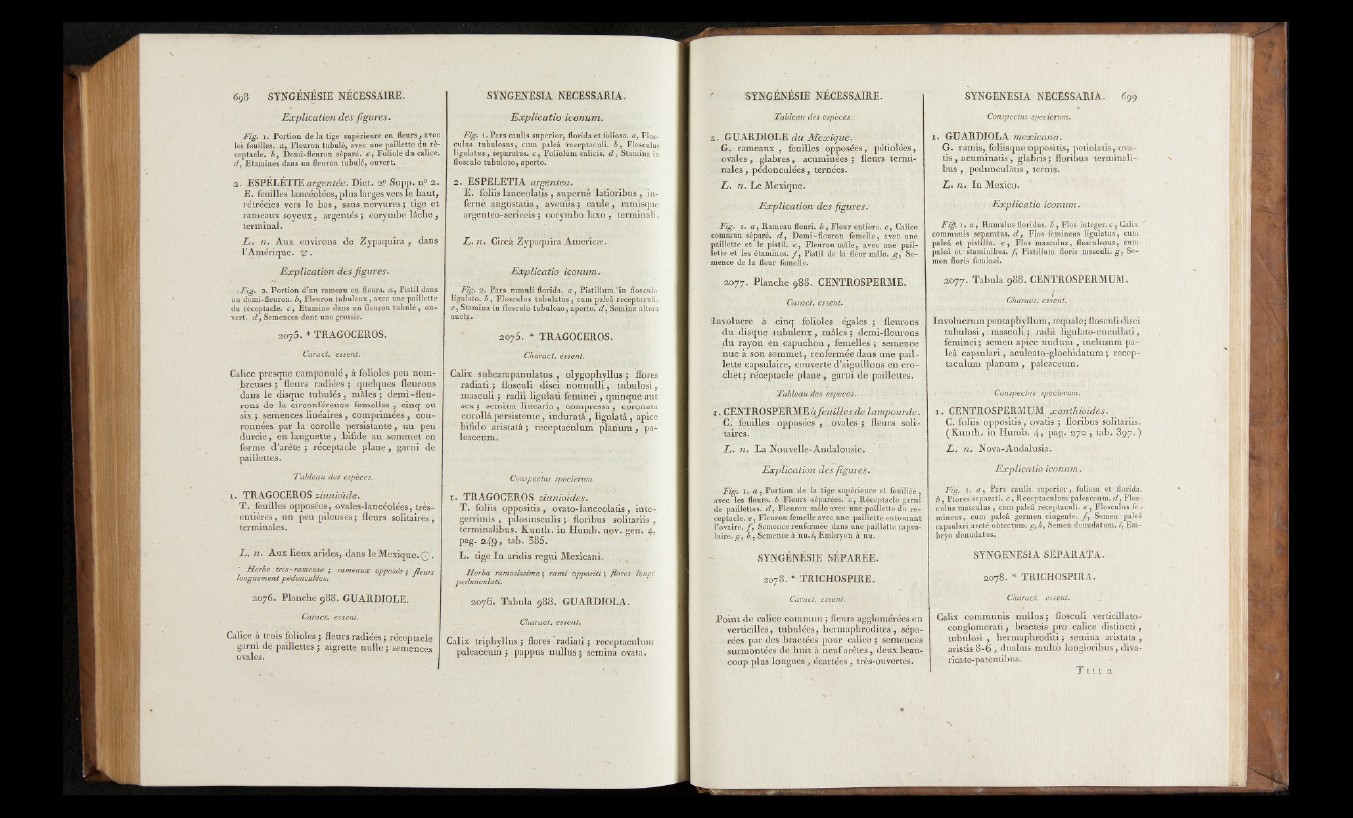 698 SYNGÉNÉSIE NÉCESSAIRE.
Explication des figures.
Fig. 1. Portion de la tige supérieure en fleurs, avec
les feuilles. a, Fleuron tubulé, avec une paillette du ré-
ceptacle. b, Demi-fleuron séparé. c, Foliole du calice.
d, Etamines dans un fleuron tubulé, ouvert.
2. ESPÉLÉTIE argentée. Dict. 2e Supp. n° 2.
E. feuilles lancéolées, plus larges vers le haut,
rétrécies vers le bas, sans nervures ; tige et
rameaux soyeux, argentés ; corymbe lâche,
terminal.
L. n. Aux environs de Zypaquira, dans
l'Amérique. ♃.
Explication des figures.
Fig. 2. Portion d'un rameau en fleurs. a, Pistil dans
un demi-fleuron. b, Fleuron tubuleux, avec une paillette
du réceptacle. c, Etamine dans un fleuron tubulé, ou-
vert. d, Semences dont une grossie.
2075. * TRAGOCEROS.
Caract. essent.
Calice presque campanulé, à folioles peu nom-
breuses ; fleurs radiées ; quelques fleurons
dans le disque tubulés, mâles ; demi-fleu-
rons de la circonférence femelles ; cinq ou
six ; semences linéaires, comprimées, cou-
ronnées par la corolle persistante, un peu
durcie, en languette, bifide au sommet en
forme d'arête ; réceptacle plane, garni de
paillettes.
Tableau des espèces.
1. TRAGOCEROS zinnioïde.
T. feuilles opposées, ovales-lancéolées, très-
entières, un peu pileuses ; fleurs solitaires,
terminales.
L. n. Aux lieux arides, dans le Mexique. ☉.
Herbe très-rameuse ; rameaux opposés ; fleurs
longuement pédonculées.
2076. Planche 988. GUARDIOLE.
Caract. essent.
Calice à trois folioles ; fleurs radiées ; réceptacle
garni de paillettes ; aigrette nulle ; semences
ovales.
SYNGENESIA NECESSARIA.
Explicatio iconum.
Fig. 1. Pars caulis superior, florida et foliosa. a, Flos-
culus tubulosus, cum paleâ receptaculi. b, Flosculus
ligulatus, separatus. c, Foliolum calicis. d, Stamina in
flosculo tubuloso, aperto.
2. ESPELETIA argentea.
E. foliis lanceolatis, supernè latioribus, in-
fernè angustatis, aveniis ; caule, ramisque
argenteo-sericeis ; corymbo laxo, terminali.
L. n. Circà Zypaquira Americæ.
Explicatio iconum.
Fig. 2. Pars ramuli florida. a, Pistillum in flosculo
ligulato. b, Flosculus tubulatus, cum paleâ receptaculi.
c, Stamina in flosculo tubuloso, aperto. d, Semina altera
aucta.
2075. * TRAGOCEROS.
Charact. essent.
Calix subcampanulatus, olygophyllus ; flores
radiati ; flosculi disci nonnulli, tubulosi,
masculi ; radii ligulati feminei, quinque aut
sex ; semina linearia, compressa, coronata
corollâ persistente, induratâ, ligulatâ, apice
bifido aristatâ ; receptaculum planum, pa-
leaceum.
Conspectus specierum.
1. TRAGOCEROS zinnioides.
T. foliis oppositis, ovato-lanceolatis, inte-
gerrimis, pilosiusculis ; floribus solitariis,
terminalibus. Kunth. in Humb. nov. gen. 4,
pag. 249, tab. 385.
L. tige In aridis regni Mexicani.
Herba ramosissima ; rami oppositi ; flores longè
pedunculati.
2076. Tabula 988. GUARDIOLA.
Charact. essent.
Calix triphyllus ; flores radiati ; receptaculum
paleaceum ; pappus nullus ; semina ovata.
SYNGÉNÉSIE NÉCESSAIRE.
Tableau des espèces.
1. GUARDIOLE du Mexique.
G. rameaux, feuilles opposées, pétiolées,
ovales, glabres, acuminées ; fleurs termi-
nales, pédonculées, ternées.
L. n. Le Mexique.
Explication des figures.
Fig. 1. a, Rameau fleuri. b, Fleur entière. c, Calice
commun séparé. d, Demi-fleuron femelle, avec une
paillette et le pistil. e, Fleuron mâle, avec une pail-
lette et les étamines. f, Pistil de la fleur mâle. g, Se-
mence de la fleur femelle.
2077. Planche 988. CENTROSPERME.
Caract. essent.
Involucre à cinq folioles égales ; fleurons
du disque tubuleux, mâles ; demi-fleurons
du rayon en capuchon, femelles ; semence
nue à son sommet, renfermée dans une pail-
lette capsulaire, couverte d'aiguillons en cro-
chet ; réceptacle plane, garni de paillettes.
Tableau des espèces.
1. CENTROSPERME à feuilles de lampourde.
C. feuilles opposées, ovales ; fleurs soli-
taires.
L. n. La Nouvelle-Andalousie.
Explication des figures.
Fig. 1. a, Portion de la tige supérieure et feuillée,
avec les fleurs. b Fleurs séparées. c, Réceptacle garni
de paillettes. d, Fleuron mâle avec une paillette du ré-
ceptacle. e, Fleuron femelle avec une paillette entourant
l'ovaire. f, Semence renfermée dans une paillette capsu-
laire. g, h, Semence à nu. i, Embryon à nu.
SYNGÉNÉSIE SÉPARÉE.
2078. * TRICHOSPIRE.
Caract. essent.
Point de calice commun ; fleurs agglomérées en
verticilles, tubulées, hermaphrodites, sépa-
rées par des bractées pour calice ; semences
surmontées de huit à neuf arêtes, deux beau-
coup plus longues, écartées, très-ouvertes.
SYNGENESIA NECESSARIA. 699
Conspectus specierum.
1. GUARDIOLA mexicana.
G. ramis, foliisque oppositis, petiolatis, ova-
tis, acuminatis, glabris ; floribus terminali-
bus, pedunculatis, ternis.
L. n. In Mexico.
Explicatio iconum.
Fig. 1. a, Ramulus floridus. b, Flos integer. c, Calix
communis separatus. d, Flos femineus ligulatus, cum
paleâ et pistillo. e, Flos masculus, flosculosus, cum
paleâ et staminibus. f, Pistillum floris masculi. g, Se-
men floris feminei.
2077. Tabula 988. CENTROSPERMUM.
Charact. essent.
Involucrum pentaphyllum, æquale ; flosculi disci
tubulosi, masculi ; radii ligulato-cucullati,
feminei ; semen apice nudum, inclusum pa-
leâ capsulari, aculeato-glochidatum ; recep-
taculum planum, paleaceum.
Conspectus specierum.
1. CENTROSPERMUM xanthioides.
C. foliis oppositis, ovatis ; floribus solitariis.
(Kunth. in Humb. 4, pag. 270, tab. 397.)
L. n. Nova-Andalusia.
Explicatio iconum.
Fig. 1. a, Pars caulis superior, foliosa et florida.
b, Flores separati. c, Receptaculum paleaceum. d, Flos-
culus masculus, cum paleâ receptaculi. e, Flosculus fe-
mineus, cum paleâ germen cingente. f, Semen paleâ
capsulari arctè obtectum. g, h, Semen denudatum. i, Em-
bryo denudatus.
SYNGENESIA SEPARATA.
2078. * TRICHOSPIRA.
Charact. essent.
Calix communis nullus ; flosculi verticillato-
conglomerati, bracteis pro calice distincti,
tubulosi, hermaphroditi ; semina aristata,
aristis 8-6, duabus multò longioribus, diva-
ricato-patentibus.
Tttt 2